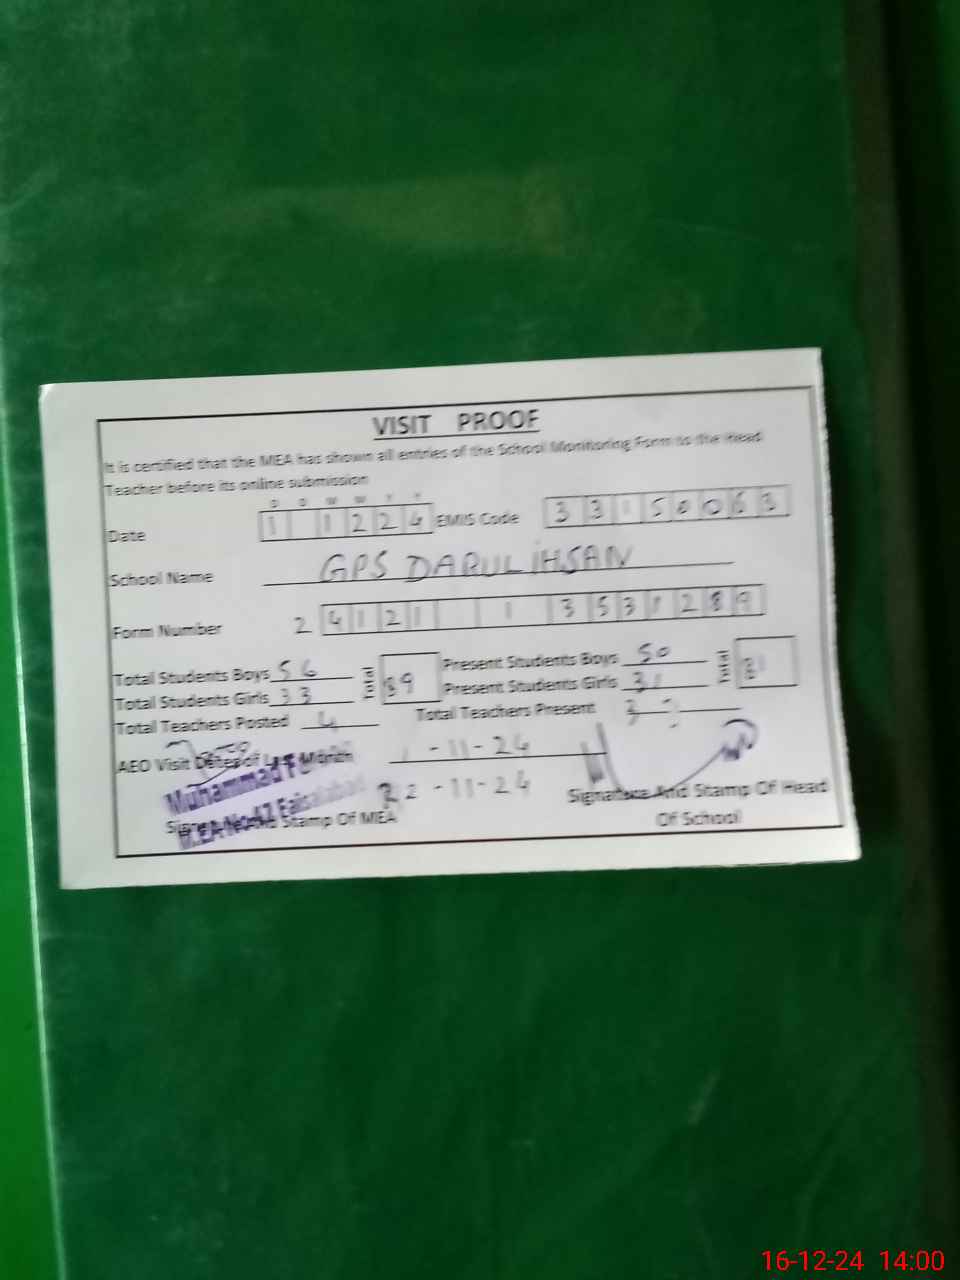 VISIT PROOF
It is certified that the MEA has shown all entries of the School Monitoring Form to the Head
Teacher before its online submission
D D M M Y Y
Date 1 1 2 2 4 EMIS Code 3 3 1 5 0 0 6 3
School Name GPS DARUL IHSAN
Form Number 2 4 1 2 1 1 3 5 3 1 2 8 9
Total Students Boys 56 Total 89 Present Students Boys 50 Total 81
Total Students Girls 33 Present Students Girls 31
Total Teachers Posted 4 Total Teachers Present 3
AEO Visit Dates of Last Month -11-24
Muhammad
22-11-24
M.E.A No.42 Faisalabad
Signature And Stamp Of MEA Signature And Stamp Of Head
Of School
16-12-24 14:00